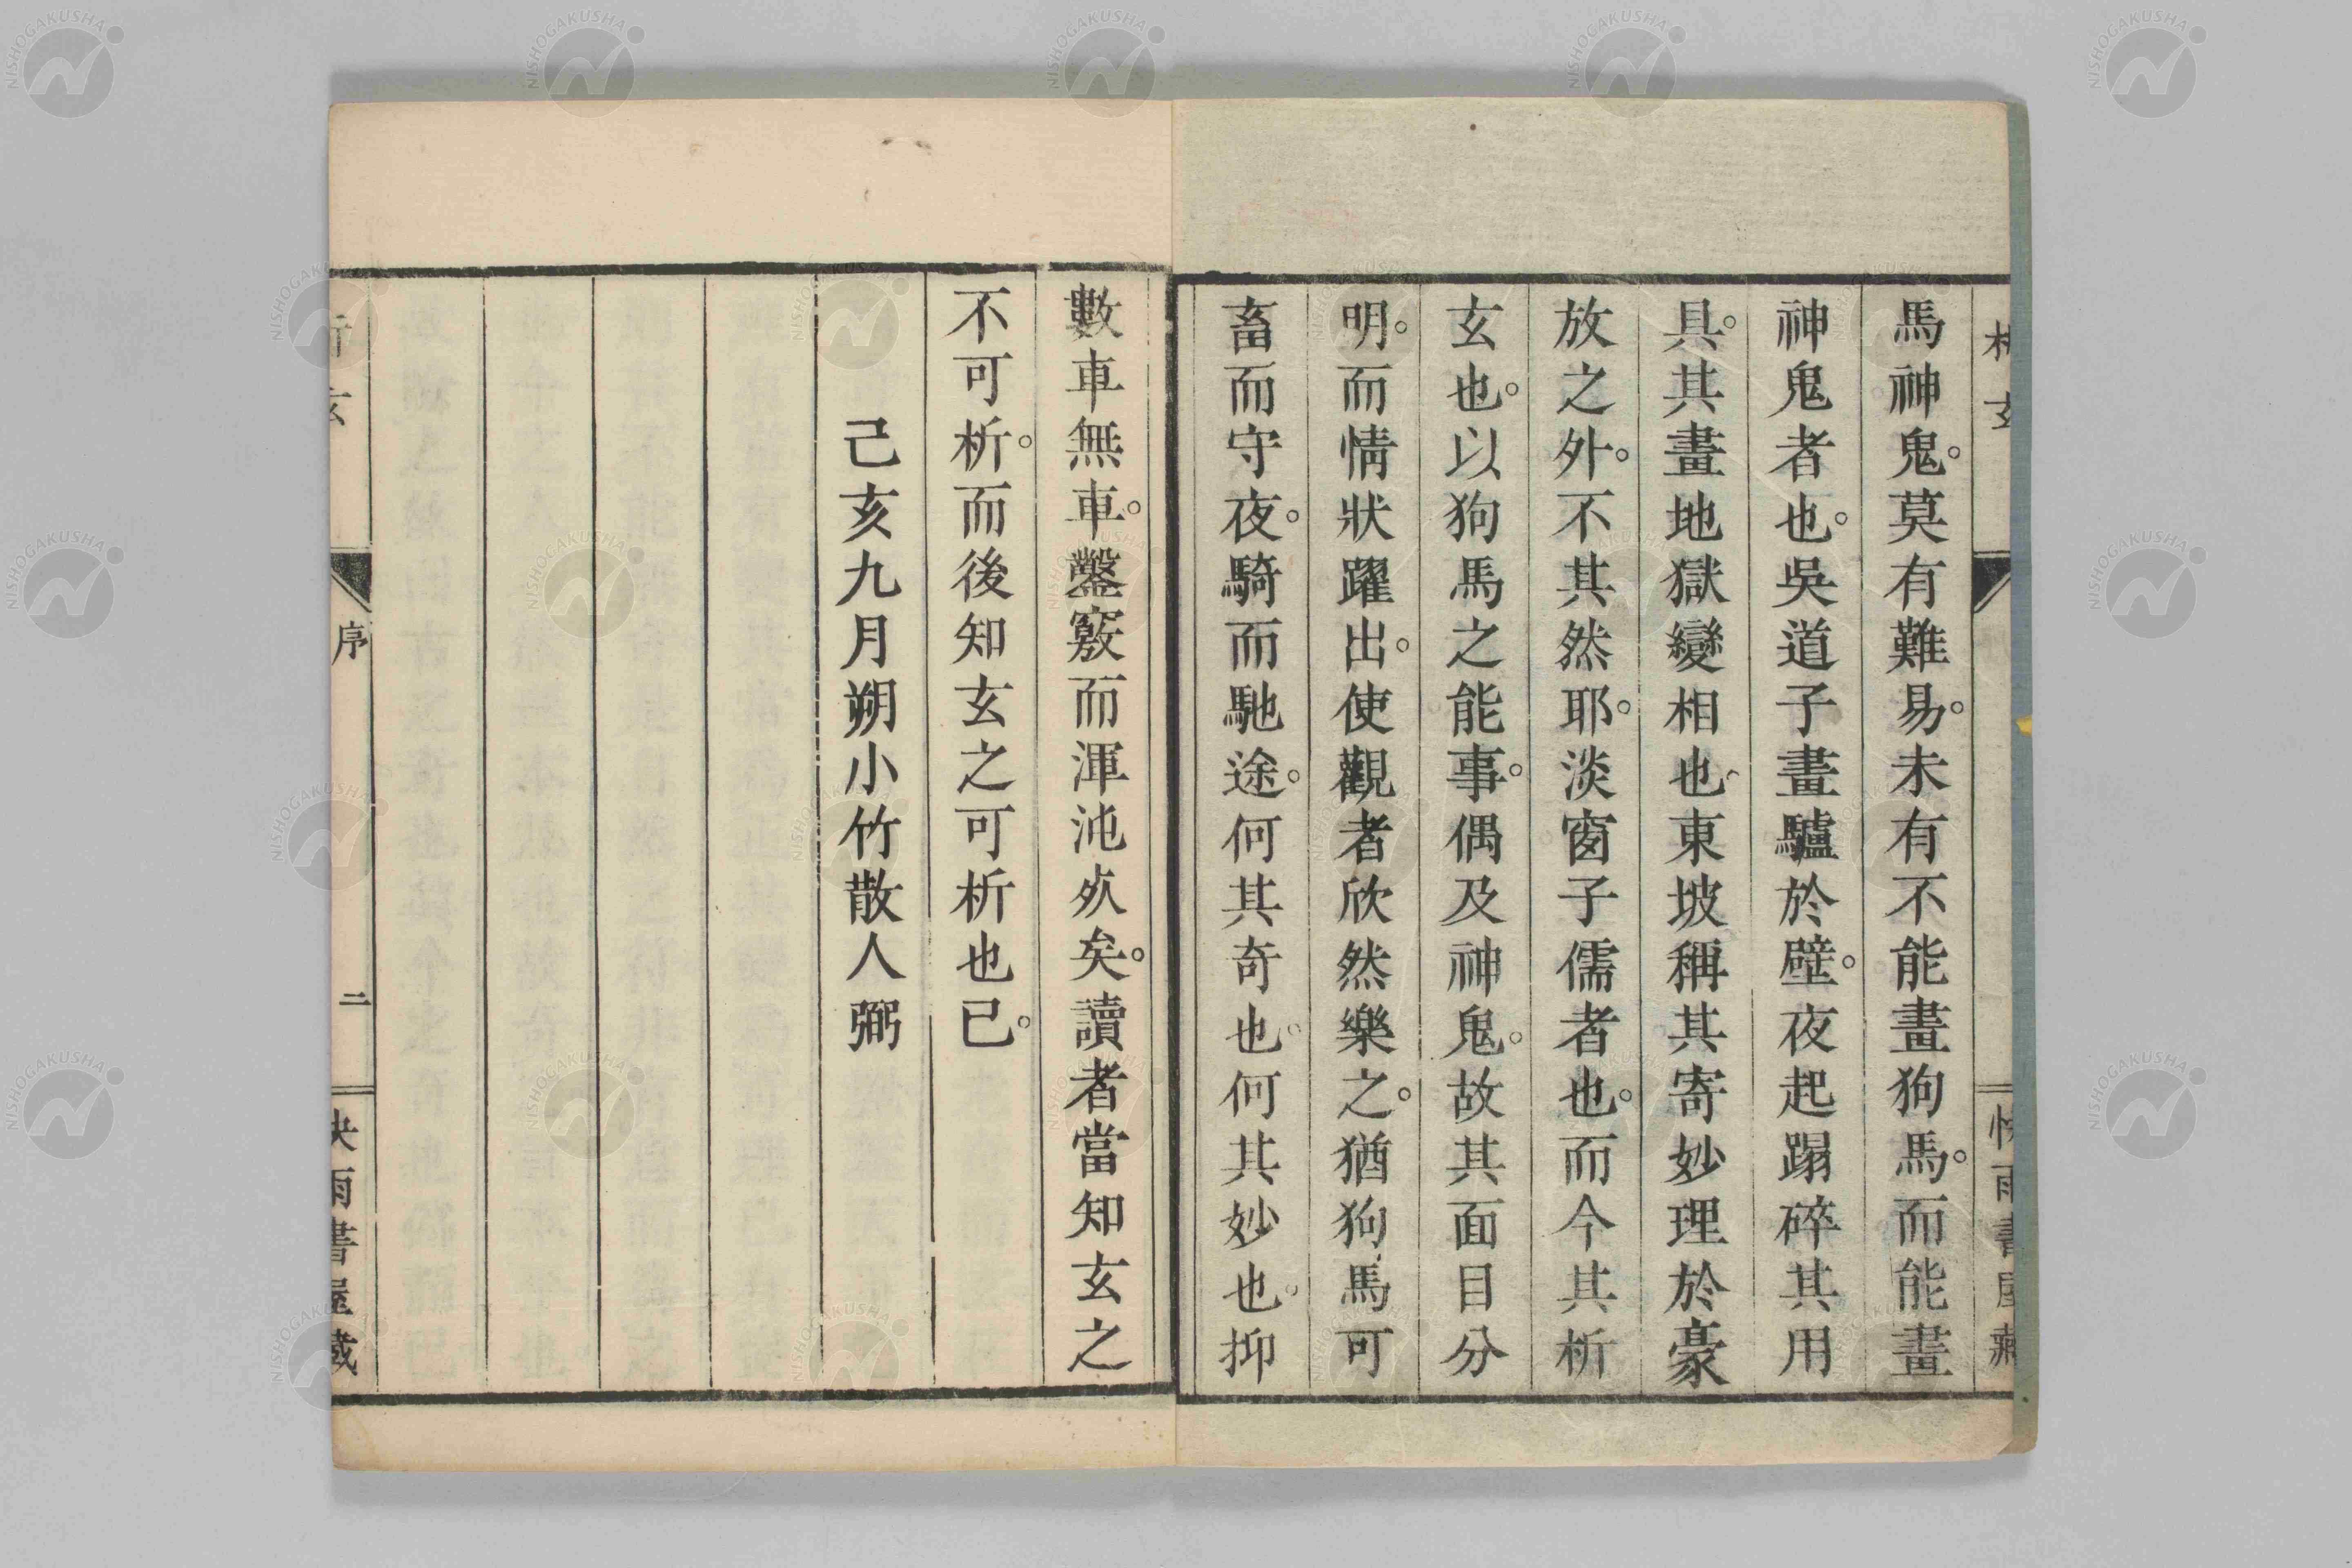 馬神鬼。莫有難易。未有不能畫狗馬。而能畫
神鬼者也。吳道子畫驢於壁。夜起蹋碎其用
具。其畫地獄變相也。東坡稱其寄妙理於豪
放之外。不其然耶。淡窗子儒者也。而今其析
玄也。以狗馬之能事。偶及神鬼。故其面目分
明。而情狀躍出。使觀者欣然樂之。猶狗馬可
畜而守夜。騎而馳途。何其奇也。何其妙也。抑
數車無車。鑿竅而渾沌死矣。讀者當知玄之
不可析。而後知玄之可析也已。
己亥九月朔小竹散人弼
序
二
NISHOGAKUSHA